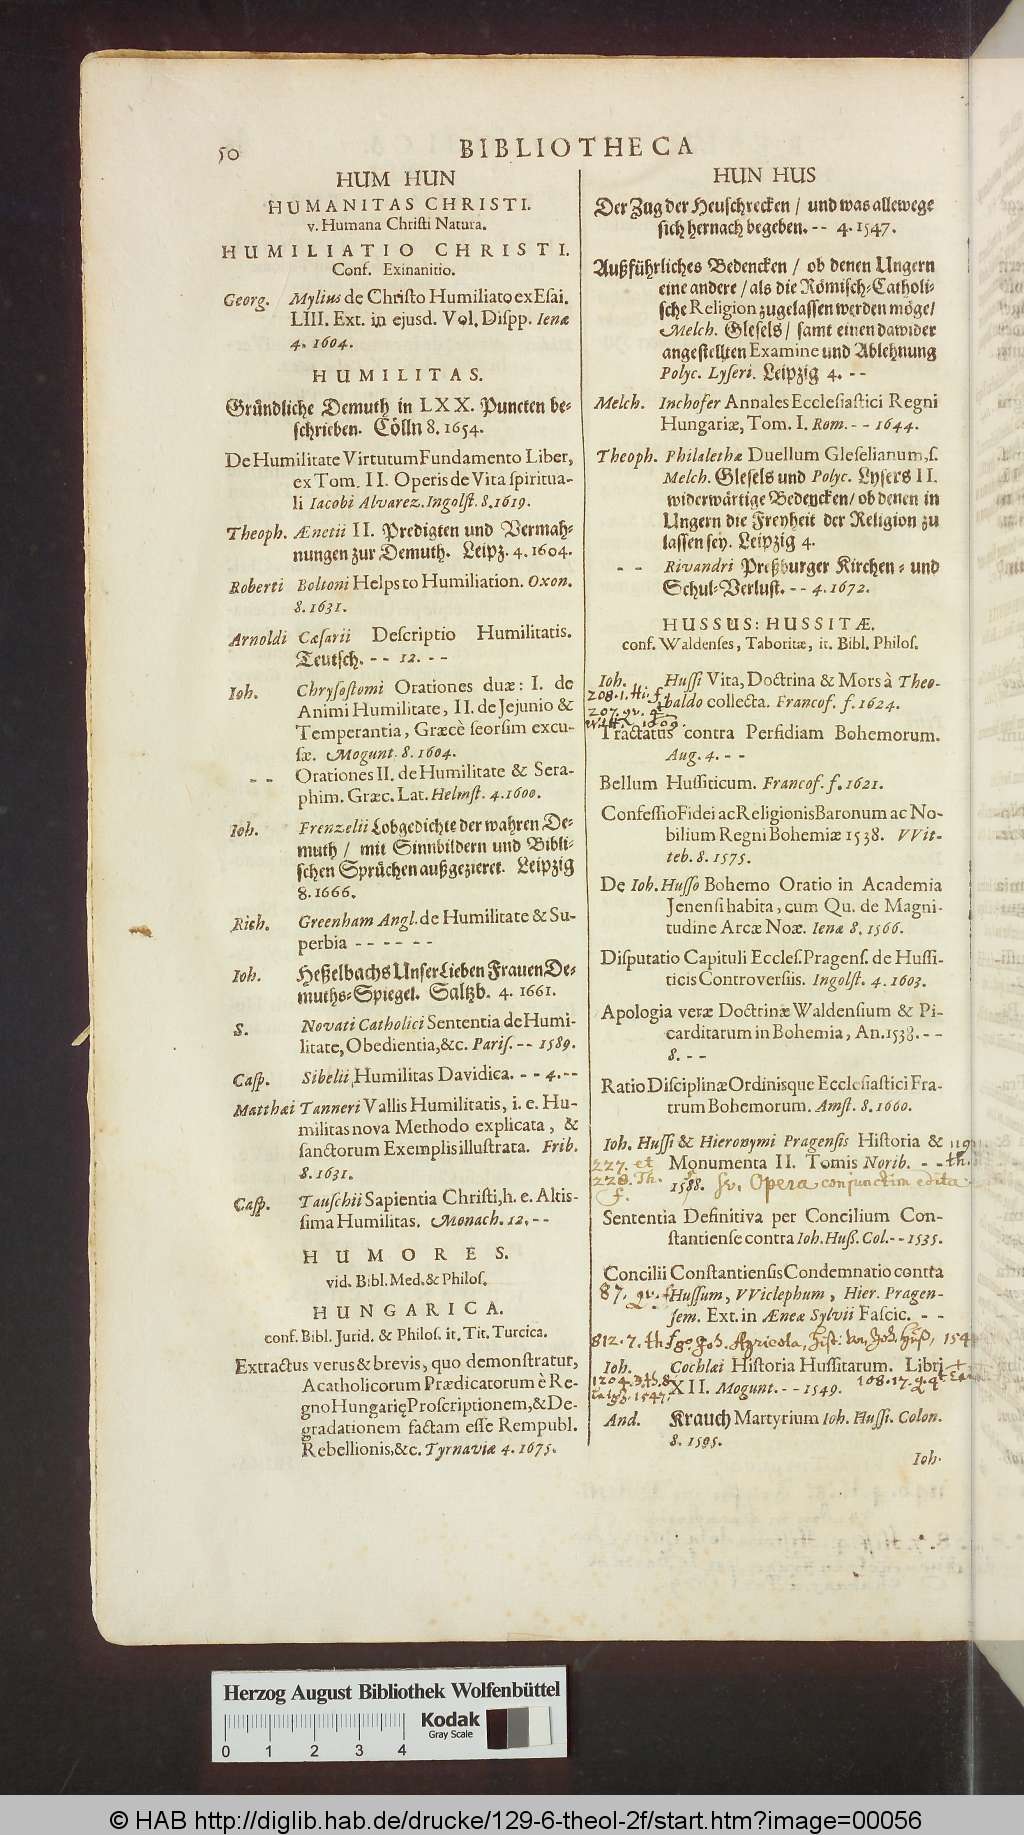 50
BIBLIOTHECA
HUM HUN
HUMANITAS CHRISTI.
v. Humana Christi Natura.
HUMILIATIO CHRISTI.
Conf. Exinanitio.
Georg. Mylius de Christo Humiliato ex Esai.
LIII. Ext. in ejusd. Vol. Dispp. Ienæ
4. 1604.
HUMILITAS.
Gründliche Demuth in LXX. Puncten be-
schrieben. Cölln 8. 1654.
De Humilitate Virtutum Fundamento Liber,
ex Tom. II. Operis de Vita spiritua-
li Iacobi Alvarez. Ingolst. 8. 1619.
Theoph. Ænetii II. Predigten und Vermah-
nungen zur Demuth. Leipz. 4. 1604.
Roberti Boltoni Helps to Humiliation. Oxon.
8. 1631.
Arnoldi Cæsarii Descriptio Humilitatis.
Teutsch. -- 12. --
Ioh. Chrysostomi Orationes duæ: I. de
Animi Humilitate, II. de Jejunio &
Temperantia, Græcè seorsim excu-
sæ. Mogunt. 8. 1604.
-- Orationes II. de Humilitate & Sera-
phim. Græc. Lat. Helmst. 4. 1600.
Ioh. Frenzelii Lobgedichte der wahren De-
muth / mit Sinnbildern und Bibli-
schen Sprüchen außgezieret. Leipzig
8. 1666.
Rich. Greenham Angl. de Humilitate & Su-
perbia - - - - - -
Ioh. Heßelbachs Unser Lieben Frauen De-
muths-Spiegel. Saltzb. 4. 1661.
S. Novati Catholici Sententia de Humi-
litate, Obedientia, &c. Paris. -- 1589.
Casp. Sibelii Humilitas Davidica. -- 4. --
Matthæi Tanneri Vallis Humilitatis, i. e. Hu-
militas nova Methodo explicata, &
sanctorum Exemplis illustrata. Frib.
8. 1631.
Casp. Tauschii Sapientia Christi, h. e. Altis-
sima Humilitas. Monach. 12. --
HUMORES.
vid. Bibl. Med. & Philos.
HUNGARICA.
conf. Bibl. Jurid. & Philos. it. Tit. Turcica.
Extractus verus & brevis, quo demonstratur,
Acatholicorum Prædicatorum è Re-
gno Hungarię Proscriptionem, & De-
gradationem factam esse Rempubl.
Rebellionis, &c. Tyrnaviæ 4. 1675.
HUN HUS
Der Zug der Heuschrecken / und was allewege
sich hernach begeben. -- 4. 1547.
Außführliches Bedencken / ob denen Ungern
eine andere / als die Römisch-Catholi-
sche Religion zugelassen werden möge /
Melch. Glesels / samt einen dawider
angestellten Examine und Ablehnung
Polyc. Lyseri. Leipzig 4. --
Melch. Inchofer Annales Ecclesiastici Regni
Hungariæ, Tom. I. Rom. -- 1644.
Theoph. Philalethæ Duellum Gleselianum, s.
Melch. Glesels und Polyc. Lysers II.
widerwärtige Bedencken / ob denen in
Ungern die Freyheit der Religion zu
lassen sey. Leipzig 4.
-- Rivandri Preßburger Kirchen- und
Schul-Verlust. -- 4. 1672.
HUSSUS: HUSSITÆ.
conf. Waldenses, Taboritæ, it. Bibl. Philos.
Ioh. Hussi Vita, Doctrina & Mors à Theo-
208.1. Hi. f.
baldo collecta. Francof. f. 1624.
207. qv. 4
1609.
Tractatus contra Perfidiam Bohemorum.
Aug. 4. --
Bellum Hussiticum. Francof. f. 1621.
Confessio Fidei ac Religionis Baronum ac No-
bilium Regni Bohemiæ 1538. VVit-
teb. 8. 1575.
De Ioh. Husso Bohemo Oratio in Academia
Jenensi habita, cum Qu. de Magni-
tudine Arcæ Noæ. Ienæ 8. 1566.
Disputatio Capituli Eccles. Pragens. de Hussi-
ticis Controversiis. Ingolst. 4. 1603.
Apologia veræ Doctrinæ Waldensium & Pi-
carditarum in Bohemia, An. 1538. --
8. --
Ratio Disciplinæ Ordinisque Ecclesiastici Fra-
trum Bohemorum. Amst. 8. 1660.
Ioh. Hussi & Hieronymi Pragensis Historia &
227. et
Monumenta II. Tomis Norib. -- th.
228. Th.
f.
1588. sv. Opera conjunctim edita
Sententia Definitiva per Concilium Con-
stantiense contra Ioh. Huß. Col. -- 1535.
Concilii Constantiensis Condemnatio contra
87. qv. f
Hussum, VViclephum, Hier. Pragen-
sem. Ext. in Æneæ Sylvii Fascic. --
812. 7. th Joh. Agricola, Hist. von Joh. Huß,
Ioh. Cochlæi Historia Hussitarum. Libri
1204. 3. th. 8
XII. Mogunt. -- 1549. 108. 17. q. 4t
1547.
And. Krauch Martyrium Ioh. Hussi. Colon.
8. 1595.
Ioh.
Herzog August Bibliothek Wolfenbüttel
Kodak
Gray Scale
0 1 2 3 4
© HAB http://diglib.hab.de/drucke/129-6-theol-2f/start.htm?image=00056